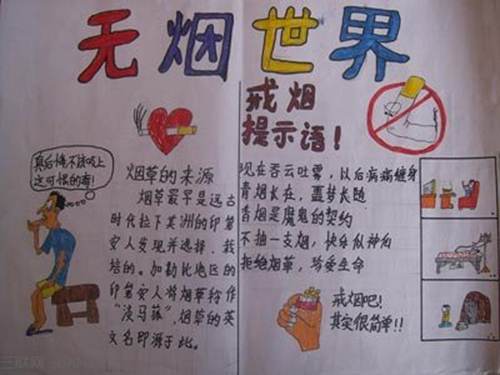 无烟世界
戒烟
提示语！
真后悔不该吸上
这可恨的毒！
烟草的来源
烟草最早是远古
时代拉下美洲的印第
安人发现并选择、栽
培的。加勒比地区的
印第安人将烟草称作
“淡马菰”，烟草的英
文名即源于此。
现在吞云吐雾，以后病病缠身
青烟长在，噩梦长随
香烟是魔鬼的契约
不抽一支烟，快乐似神仙
拒绝烟草，珍爱生命
戒烟吧！
其实很简单！！